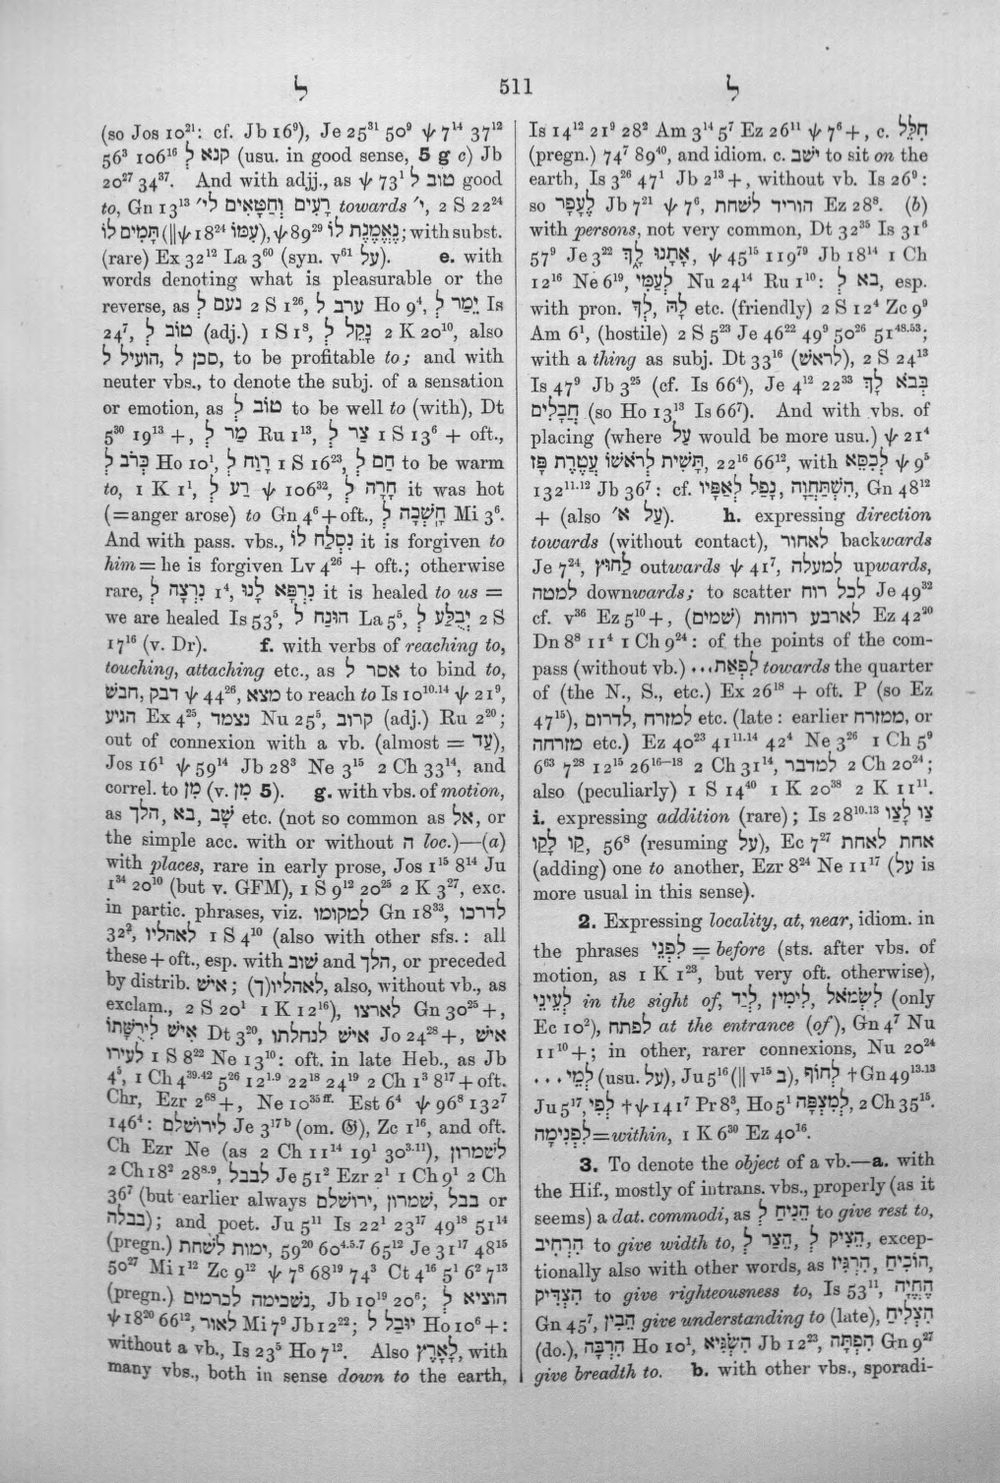 ל 511 ל
(so Jos 10²¹: cf. Jb 16⁹), Je 25³¹ 50⁹ ψ 7¹⁴ 37¹²
56³ 106¹⁶ קנא לְ (usu. in good sense, 5 g c) Jb
20²⁷ 34³⁷. And with adjj., as ψ 73¹ טוב לְ good
to, Gn 13¹³ רָעִים וְחַטָּאִים לי״ towards י״, 2 S 22²⁴
תָּמִים לוֹ (‖ψ 18²⁴ עִמּוֹ), ψ 89²⁹ נֶאֱמֶנֶת לוֹ; with subst.
(rare) Ex 32¹² La 3⁶⁰ (syn. v⁶¹ על). e. with
words denoting what is pleasurable or the
reverse, as נעם לְ 2 S 1²⁶, ערב לְ Ho 9⁴, יֵמַר לְ Is
24⁷, טוֹב לְ (adj.) 1 S 1⁸, נָקֵל לְ 2 K 20¹⁰, also
סכן ל, הועיל ל, to be profitable to; and with
neuter vbs., to denote the subj. of a sensation
or emotion, as טוֹב לְ to be well to (with), Dt
5³⁰ 19¹³ +, מַר לְ Ru 1¹³, צַר לְ 1 S 13⁶ + oft.,
כְּרֹב לְ Ho 10¹, רָוַח לְ 1 S 16²³, חַם לְ to be warm
to, 1 K 1¹, רַע לְ ψ 106³², חָרָה לְ it was hot
(=anger arose) to Gn 4⁶ + oft., חָשְׁכָה לְ Mi 3⁶.
And with pass. vbs., נִסְלַח לוֹ it is forgiven to
him = he is forgiven Lv 4²⁶ + oft.; otherwise
rare, נִרְצָה לְ 1⁴, נִרְפָּא לָנוּ it is healed to us =
we are healed Is 53⁵, הוּנַח ל La 5⁵, יְבֻלַּע לְ 2 S
17¹⁶ (v. Dr). f. with verbs of reaching to,
touching, attaching etc., as אסר ל to bind to,
דבק, חבשׁ, ψ 44²⁶, מצא to reach to Is 10¹⁰·¹⁴ ψ 21⁹,
הגיע Ex 4²⁵, נצמד Nu 25⁵, קרוב (adj.) Ru 2²⁰;
out of connexion with a vb. (almost = עַד),
Jos 16¹ ψ 59¹⁴ Jb 28³ Ne 3¹⁵ 2 Ch 33¹⁴, and
correl. to מִן (v. מִן 5). g. with vbs. of motion,
as הלך, בא, שָׁב etc. (not so common as אל, or
the simple acc. with or without ה loc.)—(a)
with places, rare in early prose, Jos 1¹⁵ 8¹⁴ Ju
1³⁴ 20¹⁰ (but v. GFM), 1 S 9¹² 20²⁵ 2 K 3²⁷, exc.
in partic. phrases, viz. למקומו Gn 18³³, לדרכו
32², לאהליו 1 S 4¹⁰ (also with other sfs.: all
these + oft., esp. with שׁוב and הלך, or preceded
by distrib. אישׁ; לאהליו(ך), also, without vb., as
exclam., 2 S 20¹ 1 K 12¹⁶), לארצו Gn 30²⁵ +,
אִישׁ לִירֻשָּׁתוֹ Dt 3²⁰, אישׁ לנחלתו Jo 24²⁸ +, אישׁ
לעירו 1 S 8²² Ne 13¹⁰: oft. in late Heb., as Jb
4⁵, 1 Ch 4³⁹·⁴² 5²⁶ 12¹·⁹ 22¹⁸ 24¹⁹ 2 Ch 1³ 8¹⁷ + oft.
Chr, Ezr 2⁶⁸ +, Ne 10³⁵ ᶠᶠ· Est 6⁴ ψ 96⁸ 132⁷
146⁴: לירושׁלם Je 3¹⁷ᵇ (om. 𝔊), Zc 1¹⁶, and oft.
Ch Ezr Ne (as 2 Ch 11¹⁴ 19¹ 30³·¹¹), לשׁמרון
2 Ch 18² 28⁸·⁹, לבבל Je 51² Ezr 2¹ 1 Ch 9¹ 2 Ch
36⁷ (but earlier always ירושׁלם, שׁמרון, בבל or
בבלה); and poet. Ju 5¹¹ Is 22¹ 23¹⁷ 49¹⁸ 51¹⁴
(pregn.) ימות לשׁחת, 59²⁰ 60⁴·⁵·⁷ 65¹² Je 31¹⁷ 48¹⁵
50²⁷ Mi 1¹² Zc 9¹² ψ 7⁸ 68¹⁹ 74³ Ct 4¹⁶ 5¹ 6² 7¹³
(pregn.) נשׁכימה לכרמים, Jb 10¹⁹ 20⁶; הוציא לְ
ψ 18²⁰ 66¹², לאור Mi 7⁹ Jb 12²²; יוּבַל ל Ho 10⁶ +:
without a vb., Is 23⁵ Ho 7¹². Also לָאָרֶץ, with
many vbs., both in sense down to the earth,
Is 14¹² 21⁹ 28² Am 3¹⁴ 5⁷ Ez 26¹¹ ψ 7⁶ +, c. חִלֵּל
(pregn.) 74⁷ 89⁴⁰, and idiom. c. ישׁב to sit on the
earth, Is 3²⁶ 47¹ Jb 2¹³ +, without vb. Is 26⁹:
so לֶעָפָר Jb 7²¹ ψ 7⁶, הוריד לשׁחת Ez 28⁸. (b)
with persons, not very common, Dt 32³⁵ Is 31⁶
57⁹ Je 3²² אָתָנוּ לָךְ, ψ 45¹⁵ 119⁷⁹ Jb 18¹⁴ 1 Ch
12¹⁶ Ne 6¹⁹, לְעַמִּי Nu 24¹⁴ Ru 1¹⁰: בא לְ, esp.
with pron. לָהּ, לָךְ etc. (friendly) 2 S 12⁴ Zc 9⁹
Am 6¹, (hostile) 2 S 5²³ Je 46²² 49⁹ 50²⁶ 51⁴⁸·⁵³;
with a thing as subj. Dt 33¹⁶ (לראשׁ), 2 S 24¹³
Is 47⁹ Jb 3²⁵ (cf. Is 66⁴), Je 4¹² 22²³ בְּבֹא לָךְ
חֲבָלִים (so Ho 13¹³ Is 66⁷). And with vbs. of
placing (where עַל would be more usu.) ψ 21⁴
תָּשִׁית לְרֹאשׁוֹ עֲטֶרֶת פָּז, 22¹⁶ 66¹², with לְכִסֵּא ψ 9⁵
132¹¹·¹² Jb 36⁷: cf. הִשְׁתַּחֲוָה, נָפַל לְאַפָּיו, Gn 48¹²
+ (also על א״). h. expressing direction
towards (without contact), לאחור backwards
Je 7²⁴, לַחוּץ outwards ψ 41⁷, למעלה upwards,
למטה downwards; to scatter לכל רוח Je 49³²
cf. v³⁶ Ez 5¹⁰ +, לארבע רוחות (שמים) Ez 42²⁰
Dn 8⁸ 11⁴ 1 Ch 9²⁴: of the points of the com-
pass (without vb.) לִפְאַת... towards the quarter
of (the N., S., etc.) Ex 26¹⁸ + oft. P (so Ez
47¹⁵), למזרח, לדרום etc. (late: earlier ממזרח, or
מזרחה etc.) Ez 40²³ 41¹¹·¹⁴ 42⁴ Ne 3²⁶ 1 Ch 5⁹
6⁶³ 7²⁸ 12¹⁵ 26¹⁶⁻¹⁸ 2 Ch 31¹⁴, למדבר 2 Ch 20²⁴;
also (peculiarly) 1 S 14⁴⁰ 1 K 20³⁸ 2 K 11¹¹.
i. expressing addition (rare); Is 28¹⁰·¹³ צַו לָצַו
קַו לָקַו, 56⁸ (resuming על), Ec 7²⁷ אחת לאחת
(adding) one to another, Ezr 8²⁴ Ne 11¹⁷ (על is
more usual in this sense).
2. Expressing locality, at, near, idiom. in
the phrases לִפְנֵי = before (sts. after vbs. of
motion, as 1 K 1²³, but very oft. otherwise),
לְעֵינֵי in the sight of, לְיַד, לְיָמִין, לִשְׂמֹאל (only
Ec 10²), לפתח at the entrance (of), Gn 4⁷ Nu
11¹⁰ +; in other, rarer connexions, Nu 20²⁴
לְמֵי... (usu. על), Ju 5¹⁶ (‖ v¹⁵ ב), לְחוֹף † Gn 49¹³·¹³
Ju 5¹⁷, לְפִי † ψ 141⁷ Pr 8³, Ho 5¹ לְמִצְפָּה, 2 Ch 35¹⁵.
לִפְנִימָה=within, 1 K 6³⁰ Ez 40¹⁶.
3. To denote the object of a vb.—a. with
the Hif., mostly of intrans. vbs., properly (as it
seems) a dat. commodi, as הֵנִיחַ לְ to give rest to,
הִרְחִיב to give width to, הֵצַר לְ, הֵצִיק לְ, excep-
tionally also with other words, as הִרְגִּיז, הוֹכִיחַ,
הִצְדִּיק to give righteousness to, Is 53¹¹, הֶחֱיָה
Gn 45⁷, הֵבִין give understanding to (late), הִצְלִיחַ
(do.), הִרְבָּה Ho 10¹, הִשְׂגִּיא Jb 12²³, הִפְתָּה Gn 9²⁷
give breadth to. b. with other vbs., sporadi-